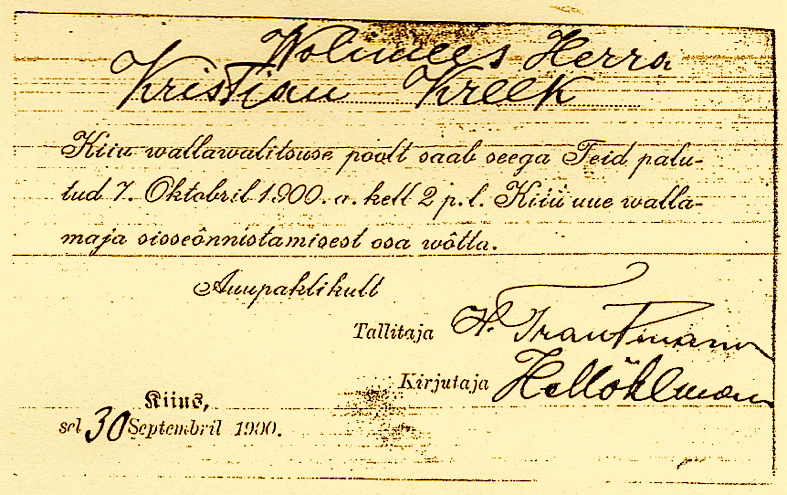 Wolimees Herra
Kristian Kreek
Kiiu wallawalitsuse poolt saab seega Teid palu-
tud 7. Oktobril 1900. a. kell 2 p. l. Kiiu uue walla-
maja sisseõnnistamisest osa wõtta.
Auupaklikult
Tallitaja H. Trautmann
Kirjutaja
Kiius,
sel 30 Septembril 1900.